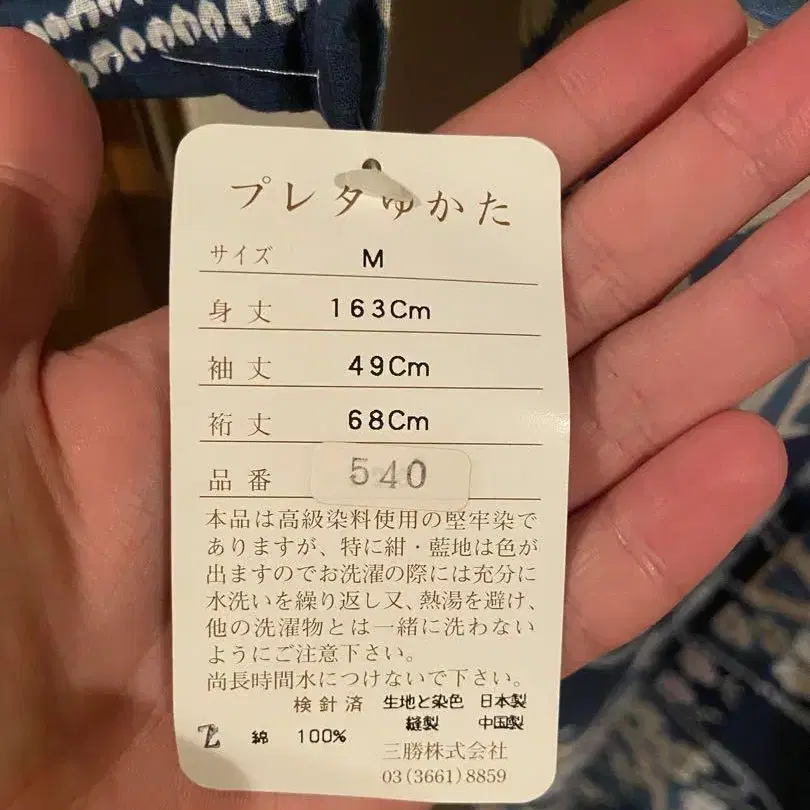 プレタゆかた
サイズ M
身丈 163Cm
袖丈 49Cm
裄丈 68Cm
品番 540
本品は高級染料使用の堅牢染で
ありますが、特に紺・藍地は色が
出ますのでお洗濯の際には充分に
水洗いを繰り返し又、熱湯を避け、
他の洗濯物とは一緒に洗わない
ようにご注意下さい。
尚長時間水につけないで下さい。
検針済 生地と染色 日本製
縫製 中国製
綿 100%
三勝株式会社
03(3661)8859